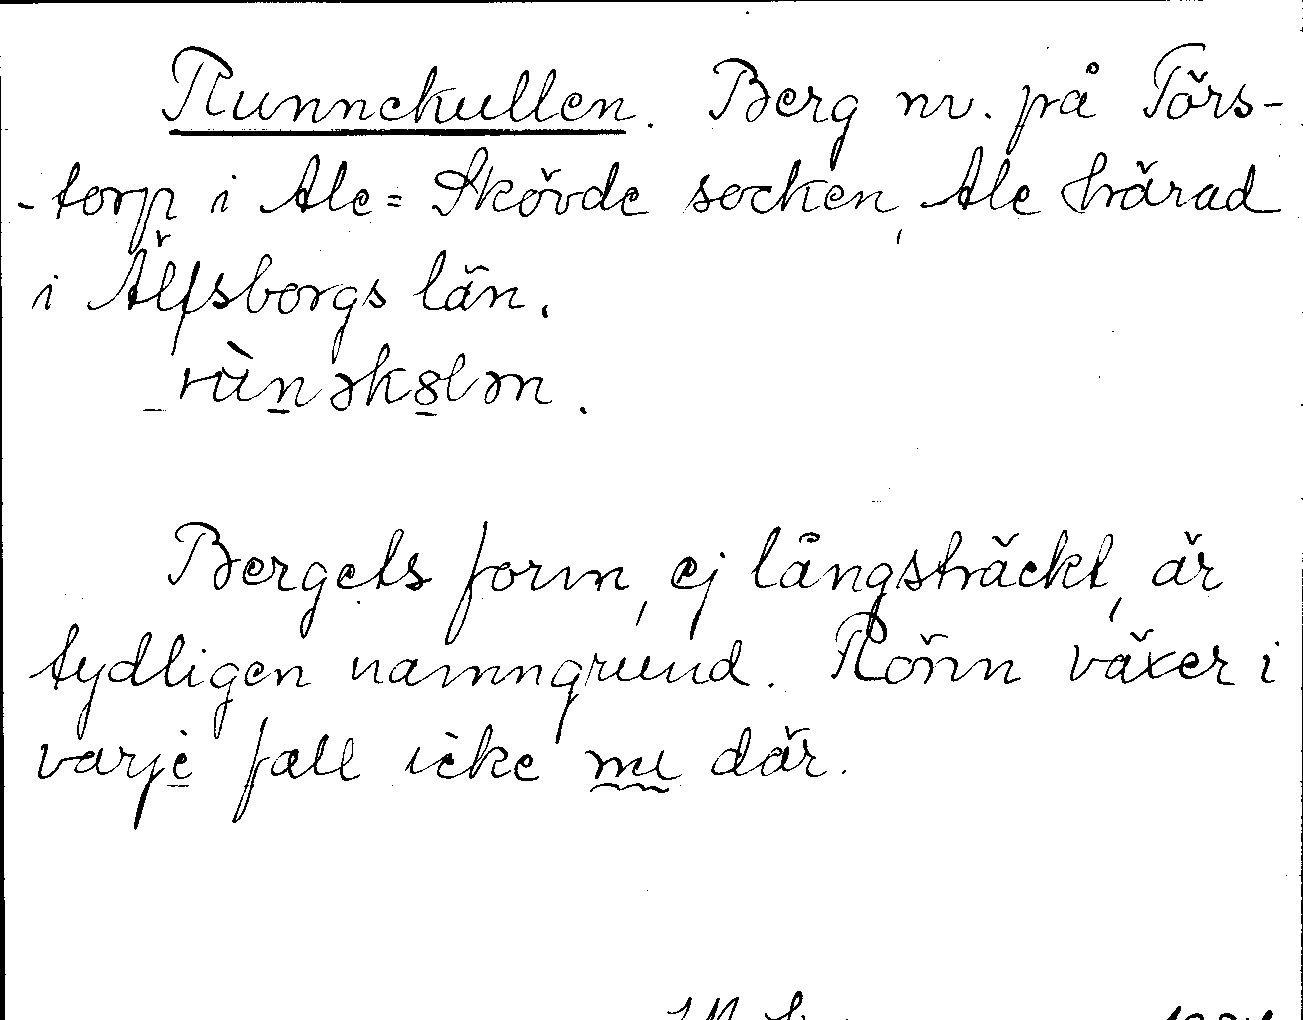 Runnekullen. Berg nv. på Törs-
-torp i Ale=Skövde socken, Ale härad
i Älfsborgs län.
rùnəkɞlən.
Bergets form, ej långsträckt, är
tydligen namngrund. Rönn växer i
varje fall icke nu där.